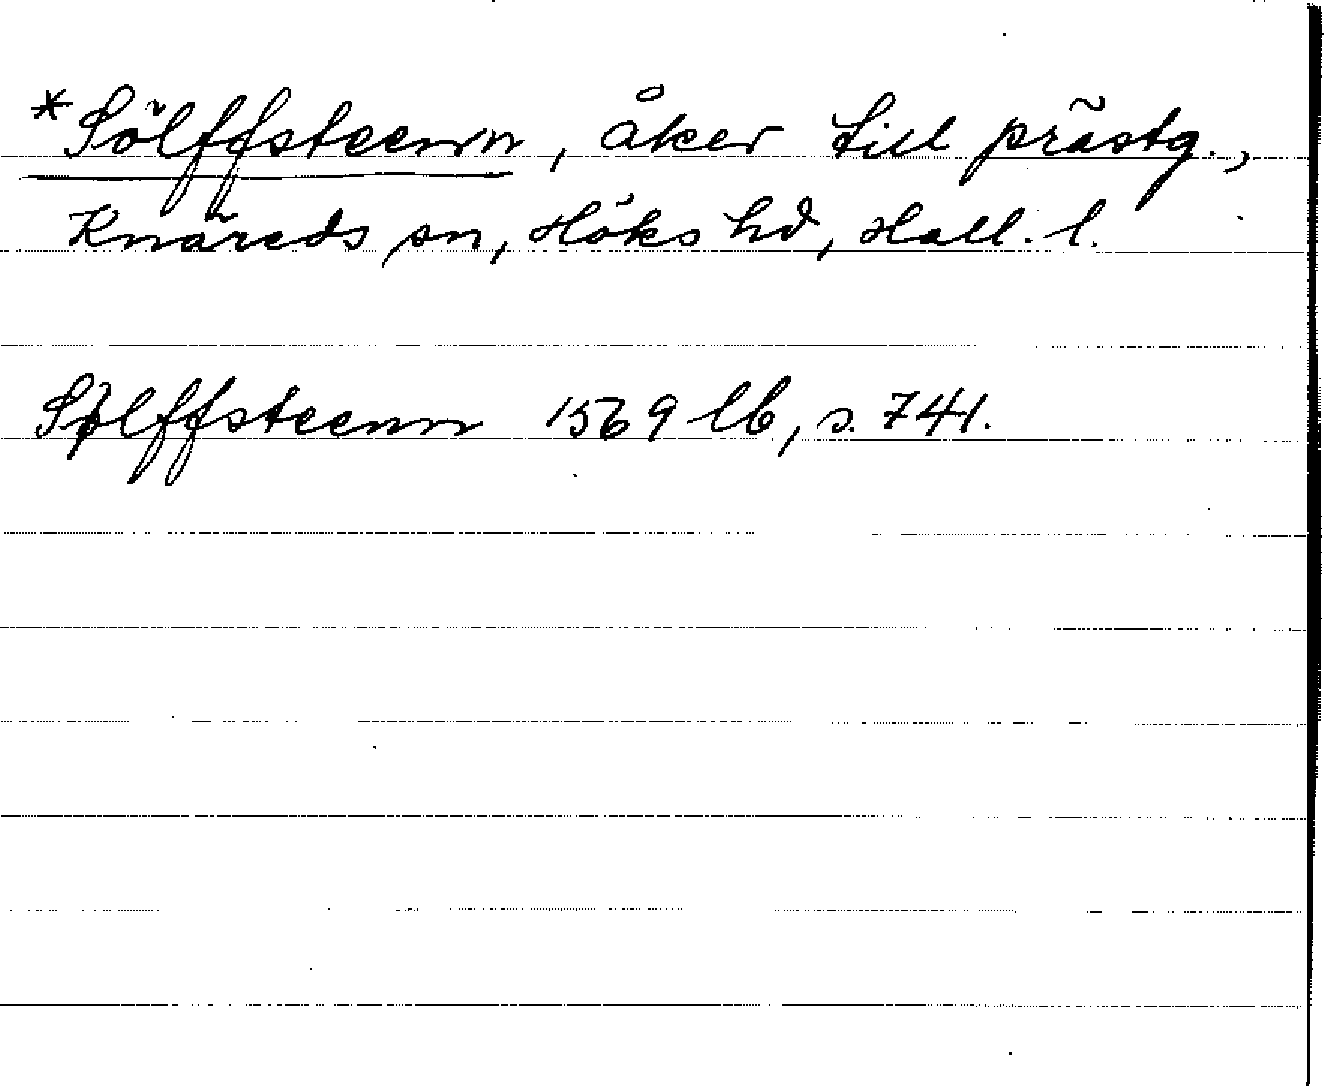 *Sölffsteenn, åker till prästg.,
Knäreds sn, Höks hd, Hall. l.
Sølffsteenn 1569 lb, s. 741.